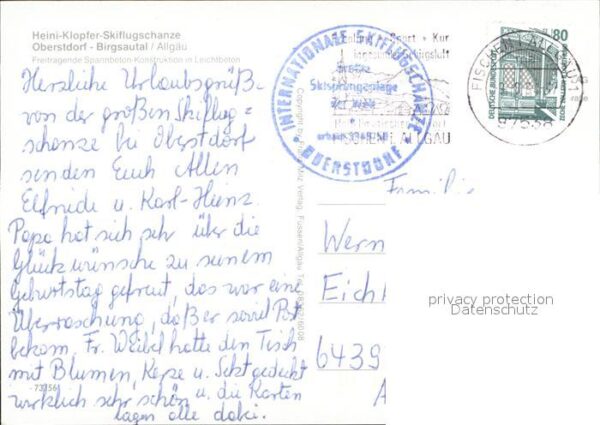 Heini-Klopfer-Skiflugschanze
Oberstdorf - Birgsautal / Allgäu
Freitragende Spannbeton-Konstruktion in Leichtbeton
Herzliche Urlaubsgrüße
von der großen Skiflug=
schanze bei Oberstdorf
senden Euch Allen
Elfriede u. Karl-Heinz.
Papa hat sich sehr über die
Glückwünsche zu seinem
Geburtstag gefreut, das war eine
Überraschung, daß er soviel Post
bekam. Fr. Weibel hatte den Tisch
mit Blumen, Kerze u. Sekt gedeckt
wirklich sehr schön u. die Karten
lagen alle dabei.
INTERNATIONALE SKIFLUGSCHANZE
OBERSTDORF
Skisprunganlage
der Welt
FISCHEN I. ALLGÄU
80
DEUTSCHE BUNDESPOST
Familie
Wern
Eichl
6439
privacy protection
Datenschutz